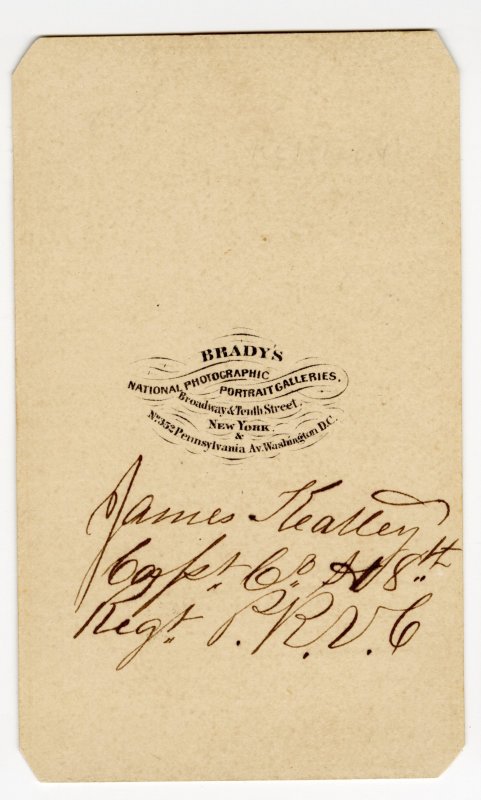 BRADY'S
NATIONAL PHOTOGRAPHIC
PORTRAIT GALLERIES,
Broadway & Tenth Street.
NEW YORK.
&
No. 352 Pennsylvania Av. Washington D.C.
James Keatley
Capt. Co. 8th
Regt. P. R. V. C